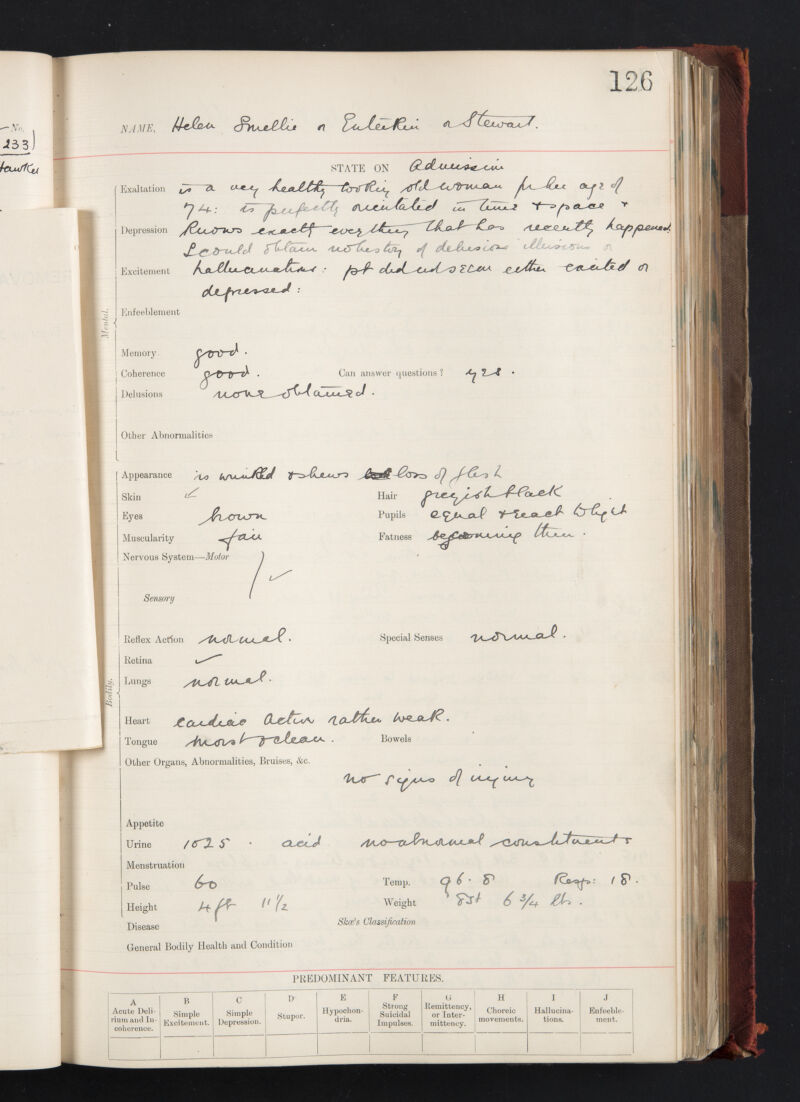 126
No.
233)
Hawker
REMOVA
NAME, Helen Smellie or Enterkin or Stewart.
STATE ON Admission
Mental.
Exaltation is a very healthy looking old woman for her age of
74: is perfectly orientated in time & space &
Depression knows exactly everything that has recently happened.
I could obtain no history of delusions illusions or
Excitement hallucinations: pt did not seem either excited or
depressed:
Enfeeblement
Memory good.
Coherence good. Can answer questions? yes.
Delusions none obtained.
Other Abnormalities
Bodily.
Appearance is wrinkled & shews loss of flesh
Skin ✓ Hair greyish black
Eyes brown Pupils equal & react to light
Muscularity fair Fatness becoming thin.
Nervous System—Motor
✓
Sensory
Reflex Action normal. Special Senses normal.
Retina ✓
Lungs normal.
Heart cardiac action rather weak.
Tongue moist & clean. Bowels
Other Organs, Abnormalities, Bruises, &c.
no signs of injury
Appetite
Urine 1025 · acid no abnormal constituents
Menstruation
Pulse 60 Temp. 96.8 Resp: 18.
Height 4 ft 11 1/2 Weight 8st 6 3/4 lbs.
Disease Skae's Classification
General Bodily Health and Condition
PREDOMINANT FEATURES.
A B C D E F G H I J
Acute Delirium and Incoherence. Simple Excitement. Simple Depression. Stupor. Hypochondria. Strong Suicidal Impulses. Remittency, or Intermittency. Choreic movements. Hallucinations. Enfeeblement.